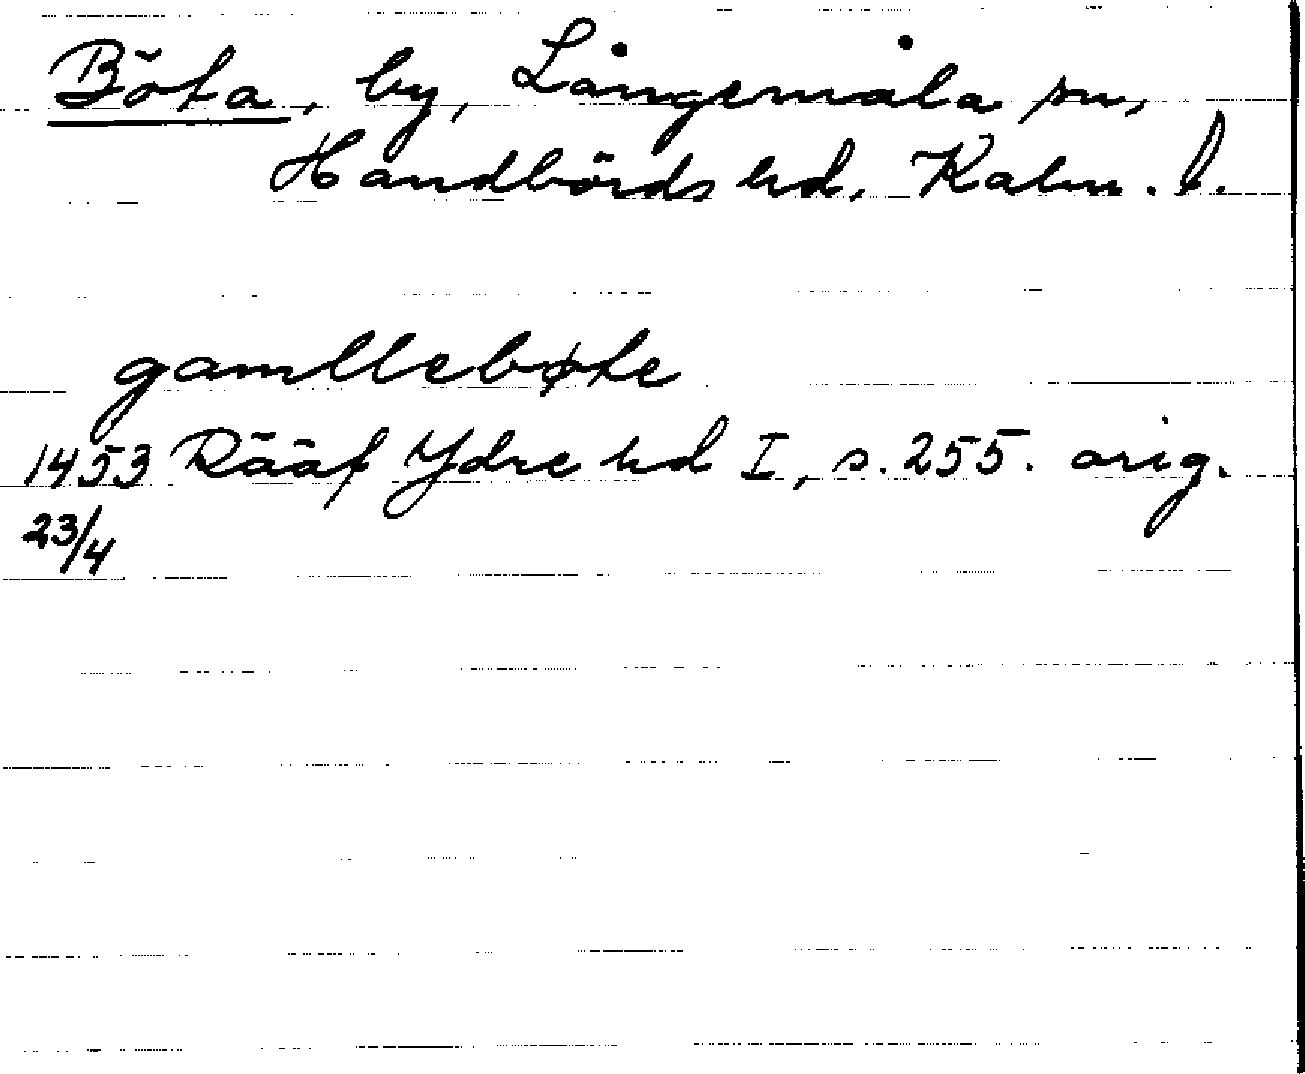 Böta, by, Långemåla sn,
Handbörds hd, Kalm. l.
gamllebøte
1453 Rääf Ydre hd I, s. 255. orig.
23/4